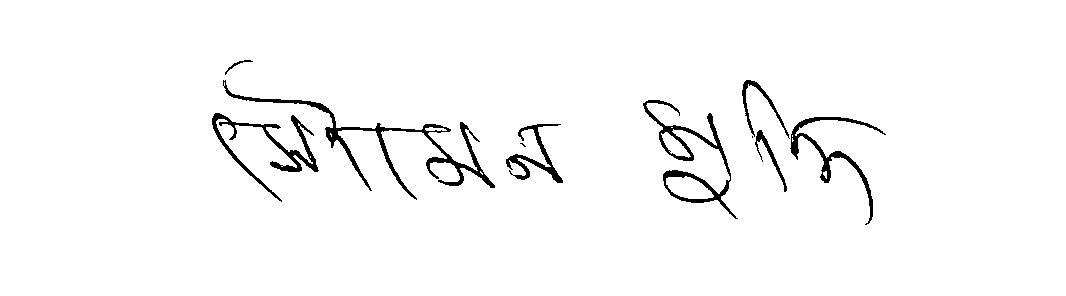 সৌমেন মুদি